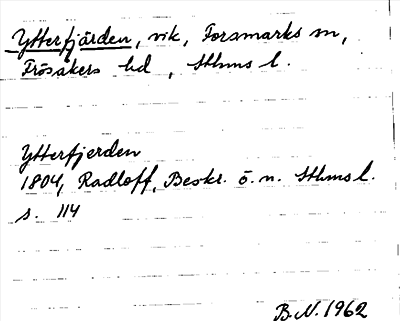 Ytterfjärden, vik, Forsmarks sn,
Frösåkers hd, Sthms l.
Ytterfjerden
1804, Radloff, Beskr. ö. n. Sthms l.
s. 114
B.N. 1962